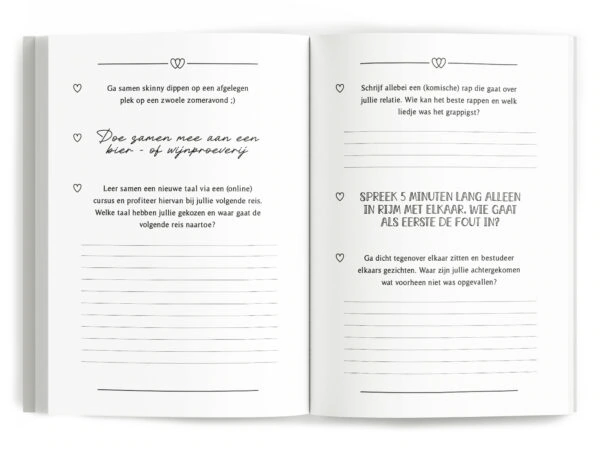 Ga samen skinny dippen op een afgelegen
plek op een zwoele zomeravond ;)
Doe samen mee aan een
bier - of wijnproeverij
Leer samen een nieuwe taal via een (online)
cursus en profiteer hiervan bij jullie volgende reis.
Welke taal hebben jullie gekozen en waar gaat de
volgende reis naartoe?
Schrijf allebei een (komische) rap die gaat over
jullie relatie. Wie kan het beste rappen en welk
liedje was het grappigst?
SPREEK 5 MINUTEN LANG ALLEEN
IN RIJM MET ELKAAR. WIE GAAT
ALS EERSTE DE FOUT IN?
Ga dicht tegenover elkaar zitten en bestudeer
elkaars gezichten. Waar zijn jullie achtergekomen
wat voorheen niet was opgevallen?